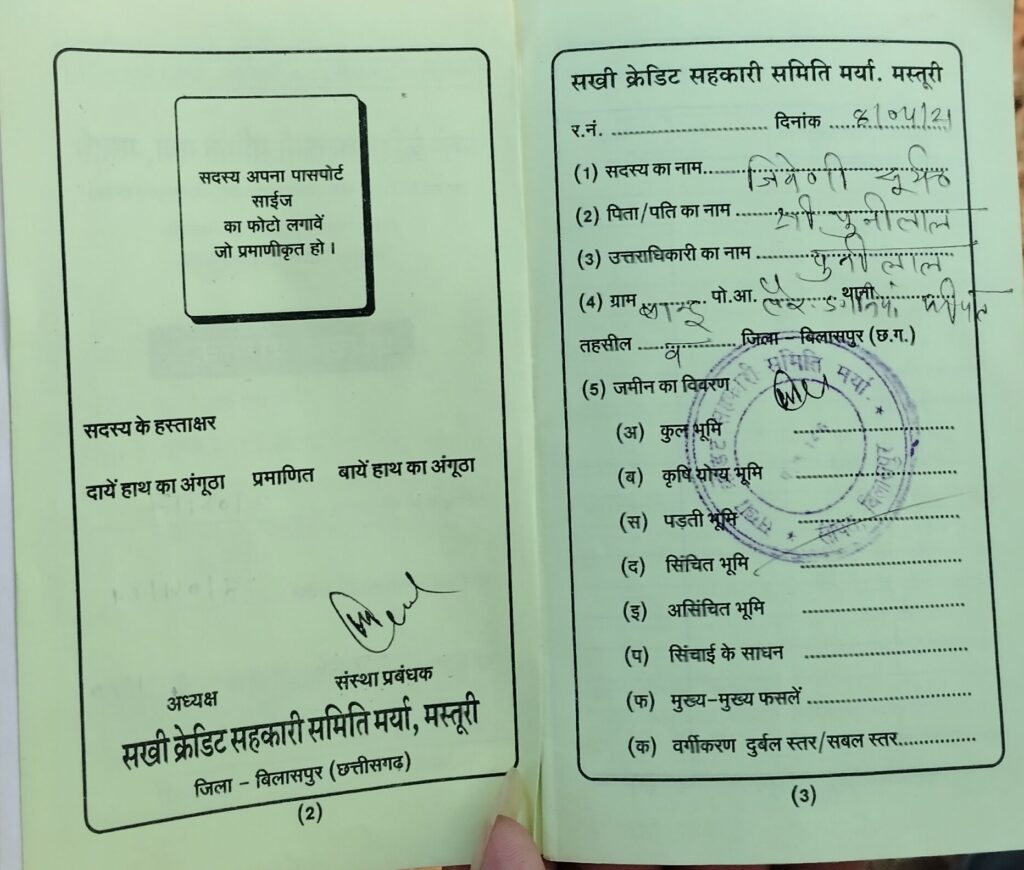 सदस्य अपना पासपोर्ट
साईज
का फोटो लगावें
जो प्रमाणीकृत हो ।
सदस्य के हस्ताक्षर
दायें हाथ का अंगूठा प्रमाणित बायें हाथ का अंगूठा
अध्यक्ष संस्था प्रबंधक
सखी क्रेडिट सहकारी समिति मर्या, मस्तूरी
जिला – बिलासपुर (छत्तीसगढ़)
(2)
सखी क्रेडिट सहकारी समिति मर्या. मस्तूरी
र.नं. .............................. दिनांक
(1) सदस्य का नाम
(2) पिता/पति का नाम श्री पुनीलाल
(3) उत्तराधिकारी का नाम पुनीलाल
(4) ग्राम पो.आ. थाना
तहसील जिला – बिलासपुर (छ.ग.)
(5) जमीन का विवरण
(अ) कुल भूमि ..............................
(ब) कृषि योग्य भूमि ..............................
(स) पड़ती भूमि ..............................
(द) सिंचित भूमि ..............................
(इ) असिंचित भूमि ..............................
(प) सिंचाई के साधन ..............................
(फ) मुख्य–मुख्य फसलें ..............................
(क) वर्गीकरण दुर्बल स्तर/सबल स्तर..............
(3)